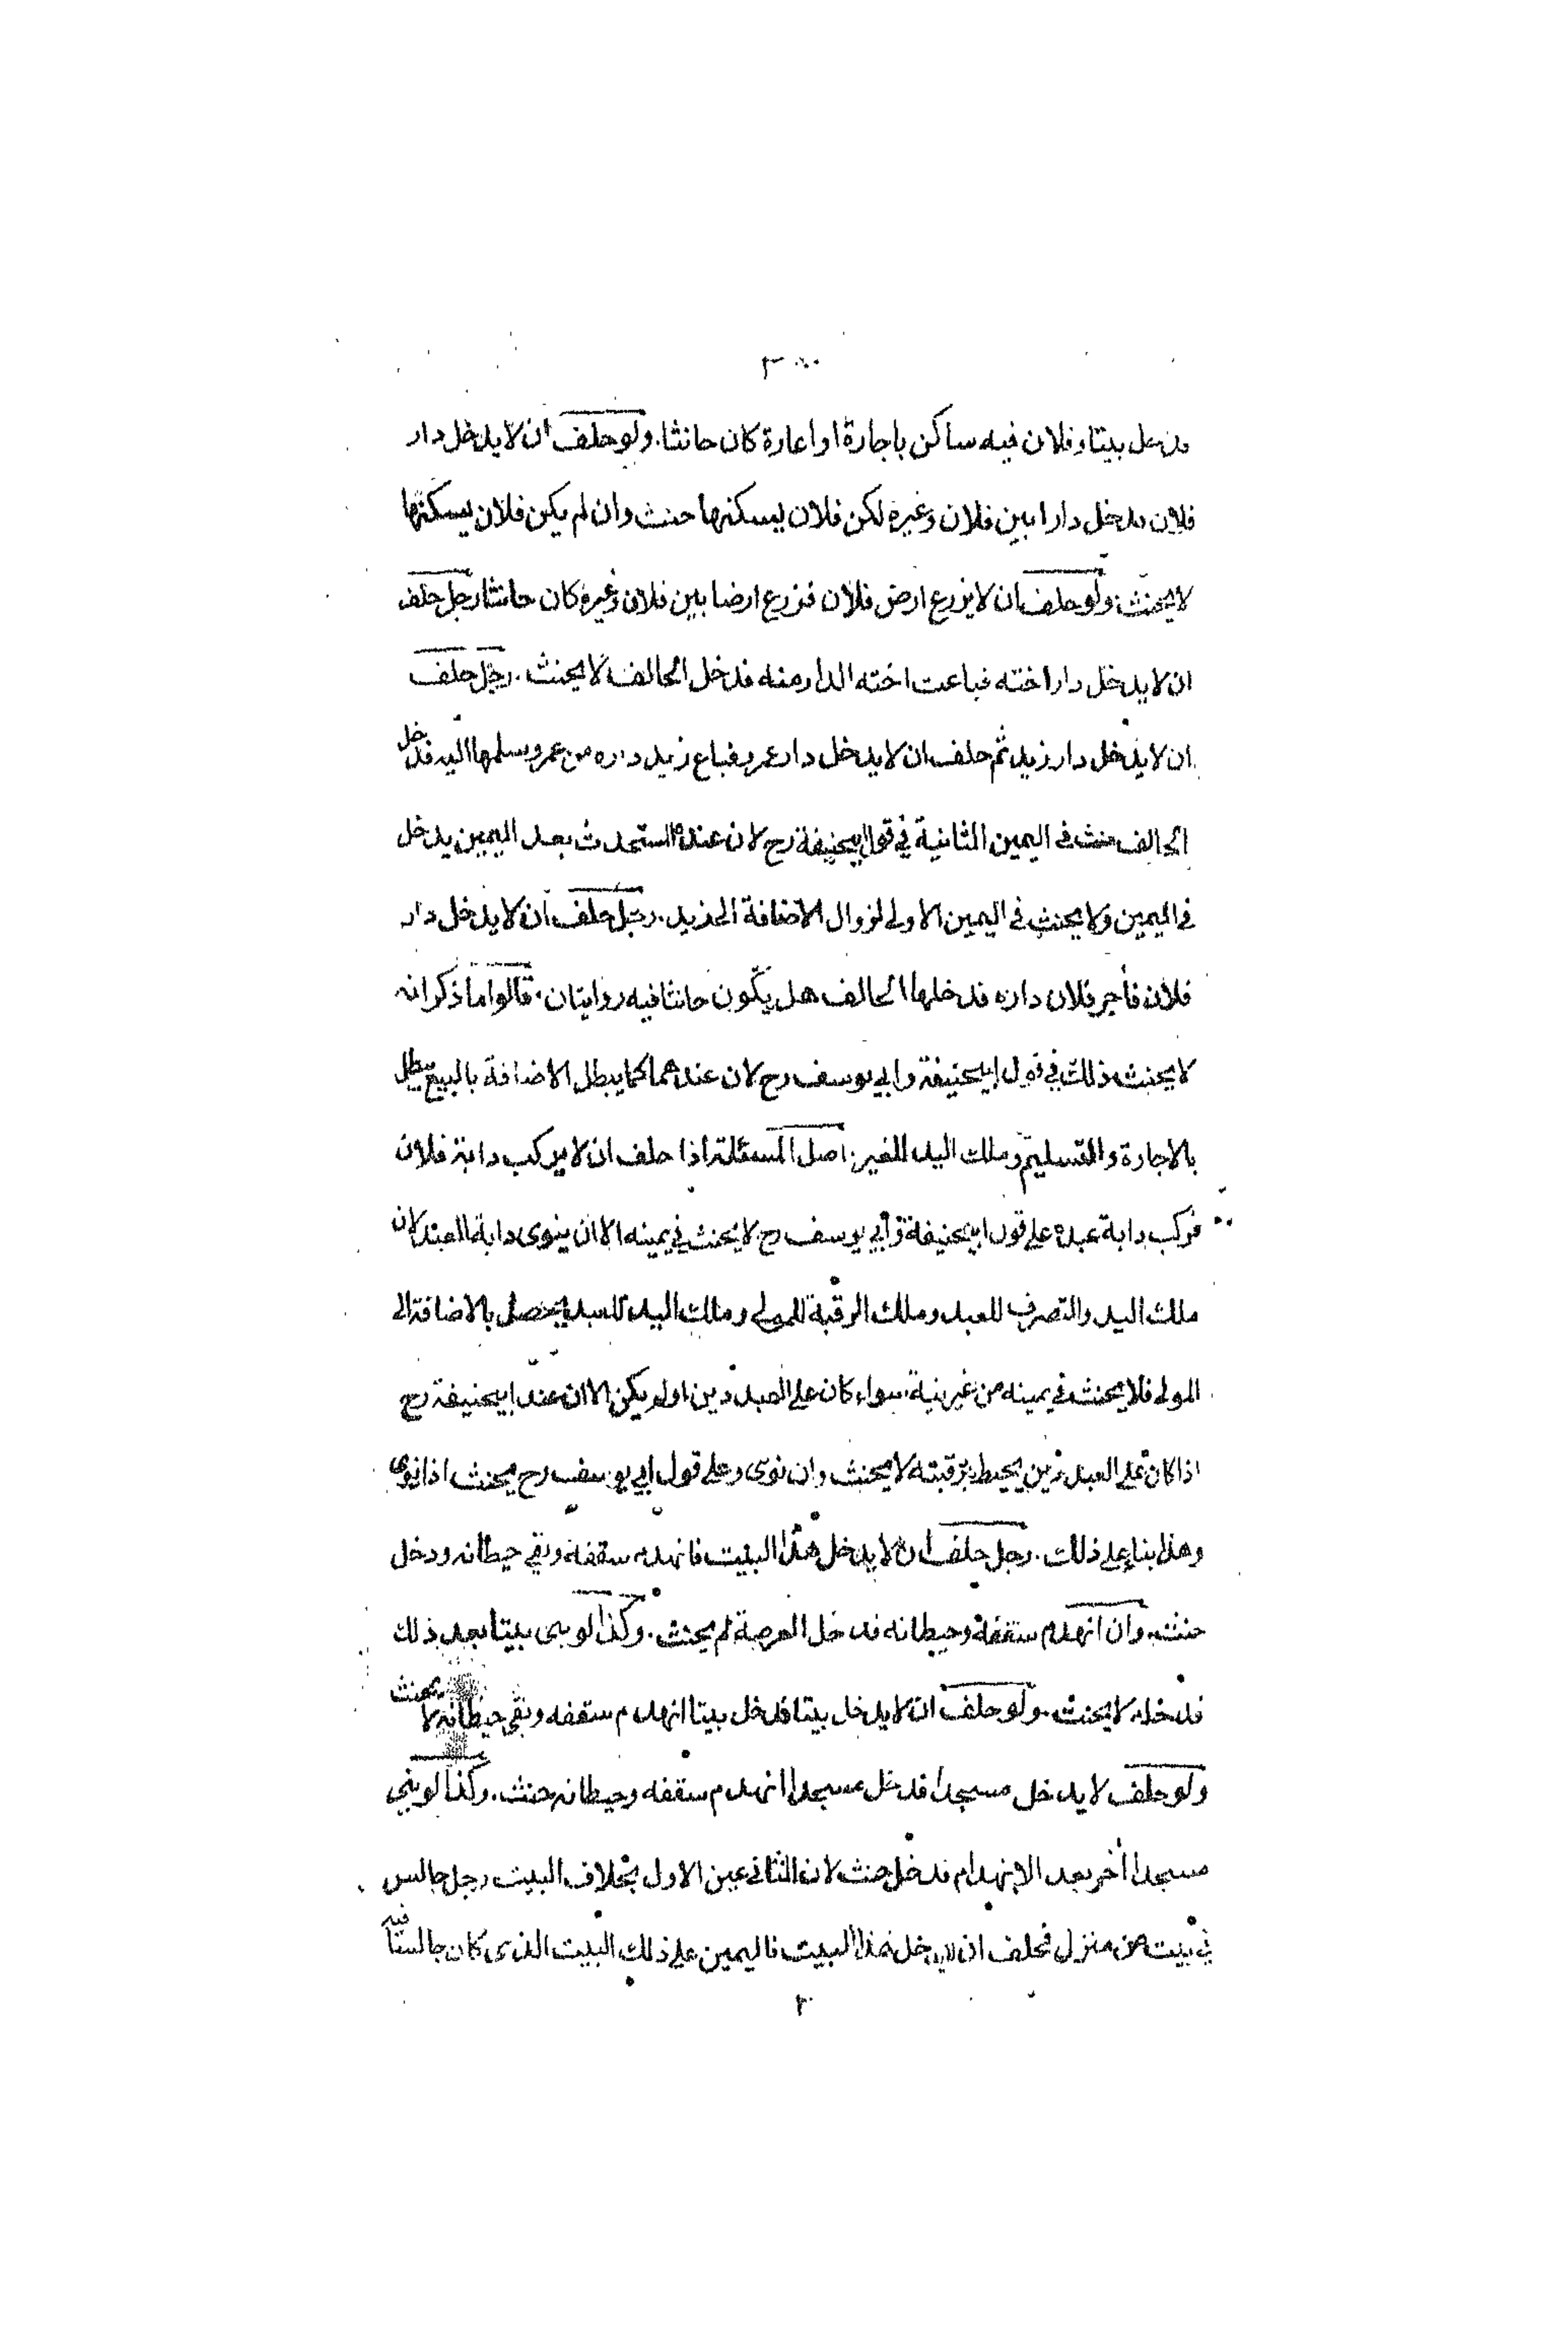 فدخل بيتا وفلان فيه ساكن باجارة او اعارة كان حانثا. ولو حلف ان لا يدخل دار
فلان فدخل دارا بين فلان وغيره لكن فلان يسكنها حنث وان لم يكن فلان يسكنها
لا يحنث. ولو حلف ان لا يزرع ارض فلان فزرع ارضا بين فلان وغيره كان حانثا رجل حلف
ان لا يدخل دار اخته فباعت اخته الدار منه فدخل الحالف لا يحنث. رجل حلف
ان لا يدخل دار زيد ثم حلف ان لا يدخل دار عمرو فباع زيد داره من عمرو سلمها اليه فدخل
الحالف حنث في اليمين الثانية في قول ابيحنيفة رح لان عنده المستحدث بعد اليمين يدخل
في اليمين ولا يحنث في اليمين الاولى لزوال الاضافة الى زيد. رجل حلف ان لا يدخل دار
فلان فأجر فلان داره فدخلها الحالف هل يكون حانثا فيه روايتان. قالوا ما ذكر انه
لا يحنث ذلك في قول ابيحنيفة وابي يوسف رح لان عندهما كما يبطل الاضافة بالبيع يبطل
بالاجارة والتسليم وملك اليد للغير. اصل المسئلة اذا حلف ان لا يركب دابة فلان
فركب دابة عبده على قول ابيحنيفة وابي يوسف رح لا يحنث في يمينه الا ان ينوى دابة العبد لان
ملك اليد والتصرف للعبد وملك الرقبة للمولى وملك اليد للعبد يحصل بالاضافة الى
المولى فلا يحنث في يمينه من غير نية. سواء كان على العبد دين اولم يكن الا ان عند ابيحنيفة رح
اذا كان على العبد دين يحيط برقبته لا يحنث وان نوى وعلى قول ابي يوسف رح يحنث اذا نوى
وهذا بناء على ذلك. رجل حلف ان لا يدخل هذا البيت فانهدم سقفه وبقي حيطانه ودخل
حنث. وان انهدم سقفه وحيطانه فدخل العرصة لم يحنث. وكذا لو بنى بيتا بعد ذلك
فدخله لا يحنث. ولو حلف ان لا يدخل بيتا فدخل بيتا انهدم سقفه وبقي حيطانه لا يحنث
ولو حلف لا يدخل مسجدا فدخل مسجدا انهدم سقفه وحيطانه حنث. وكذا لو بني
مسجدا أخر بعد الانهدام فدخل حنث لان الثاني عين الاول بخلاف البيت رجل جالس
في بيت من منزل فحلف ان لا يدخل هذا البيت فاليمين على ذلك البيت الذى كان جالسا فيه